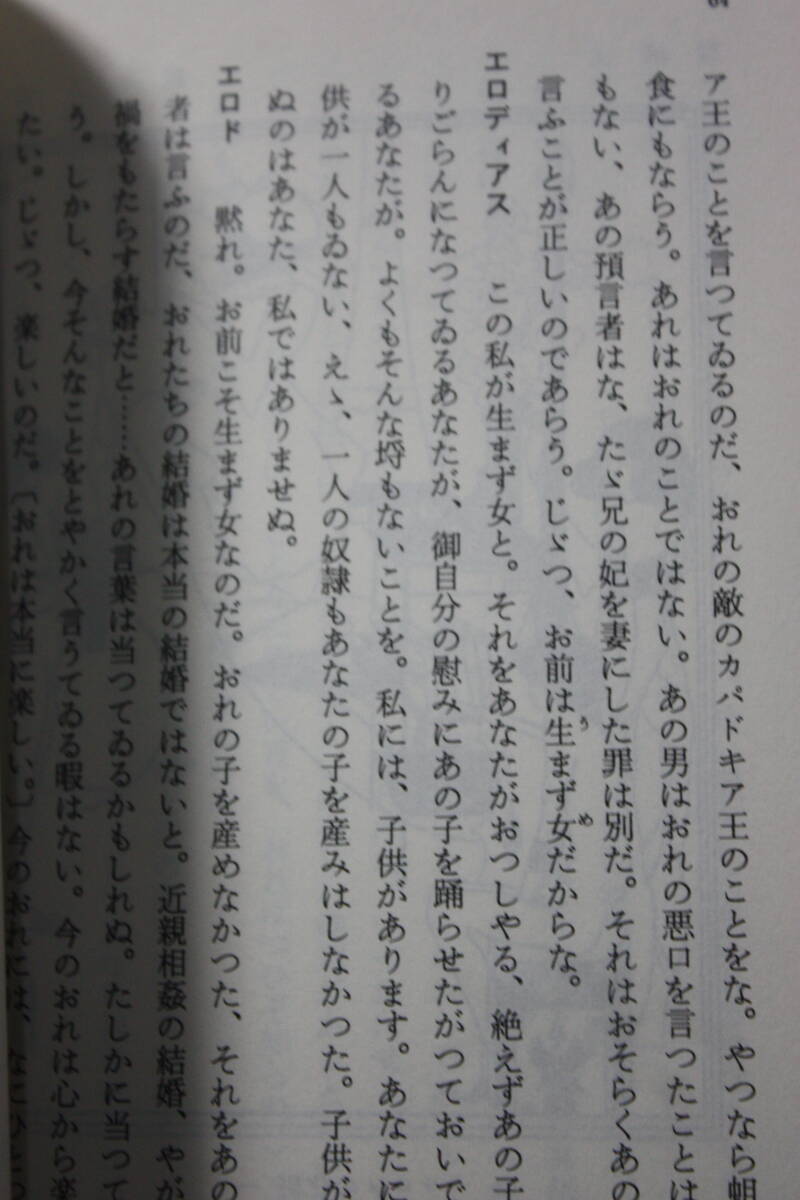 64
ア王のことを言つてゐるのだ、おれの敵のカパドキア王のことをな。やつなら蛆
食にもならう。あれはおれのことではない。あの男はおれの悪口を言つたことは
もない、あの預言者はな、たゞ兄の妃を妻にした罪は別だ。それはおそらくあの
言ふことが正しいのであらう。じゞつ、お前は生まず女だからな。
エロディアス　この私が生まず女と。それをあなたがおつしやる、絶えずあの子
りごらんになつてゐるあなたが、御自分の慰みにあの子を踊らせたがつておいで
るあなたが。よくもそんな埒もないことを。私には、子供があります。あなたに
供が一人もゐない、えゝ、一人の奴隷もあなたの子を産みはしなかつた。子供が
ぬのはあなた、私ではありませぬ。
エロド　黙れ。お前こそ生まず女なのだ。おれの子を産めなかつた、それをあの
者は言ふのだ、おれたちの結婚は本当の結婚ではないと。近親相姦の結婚、やが
禍をもたらす結婚だと……あれの言葉は当つてゐるかもしれぬ。たしかに当つて
う。しかし、今そんなことをとやかく言うてゐる暇はない。今のおれは心から楽
たい。じゞつ、楽しいのだ。〔おれは本当に楽しい。〕今のおれには、なにひとつ